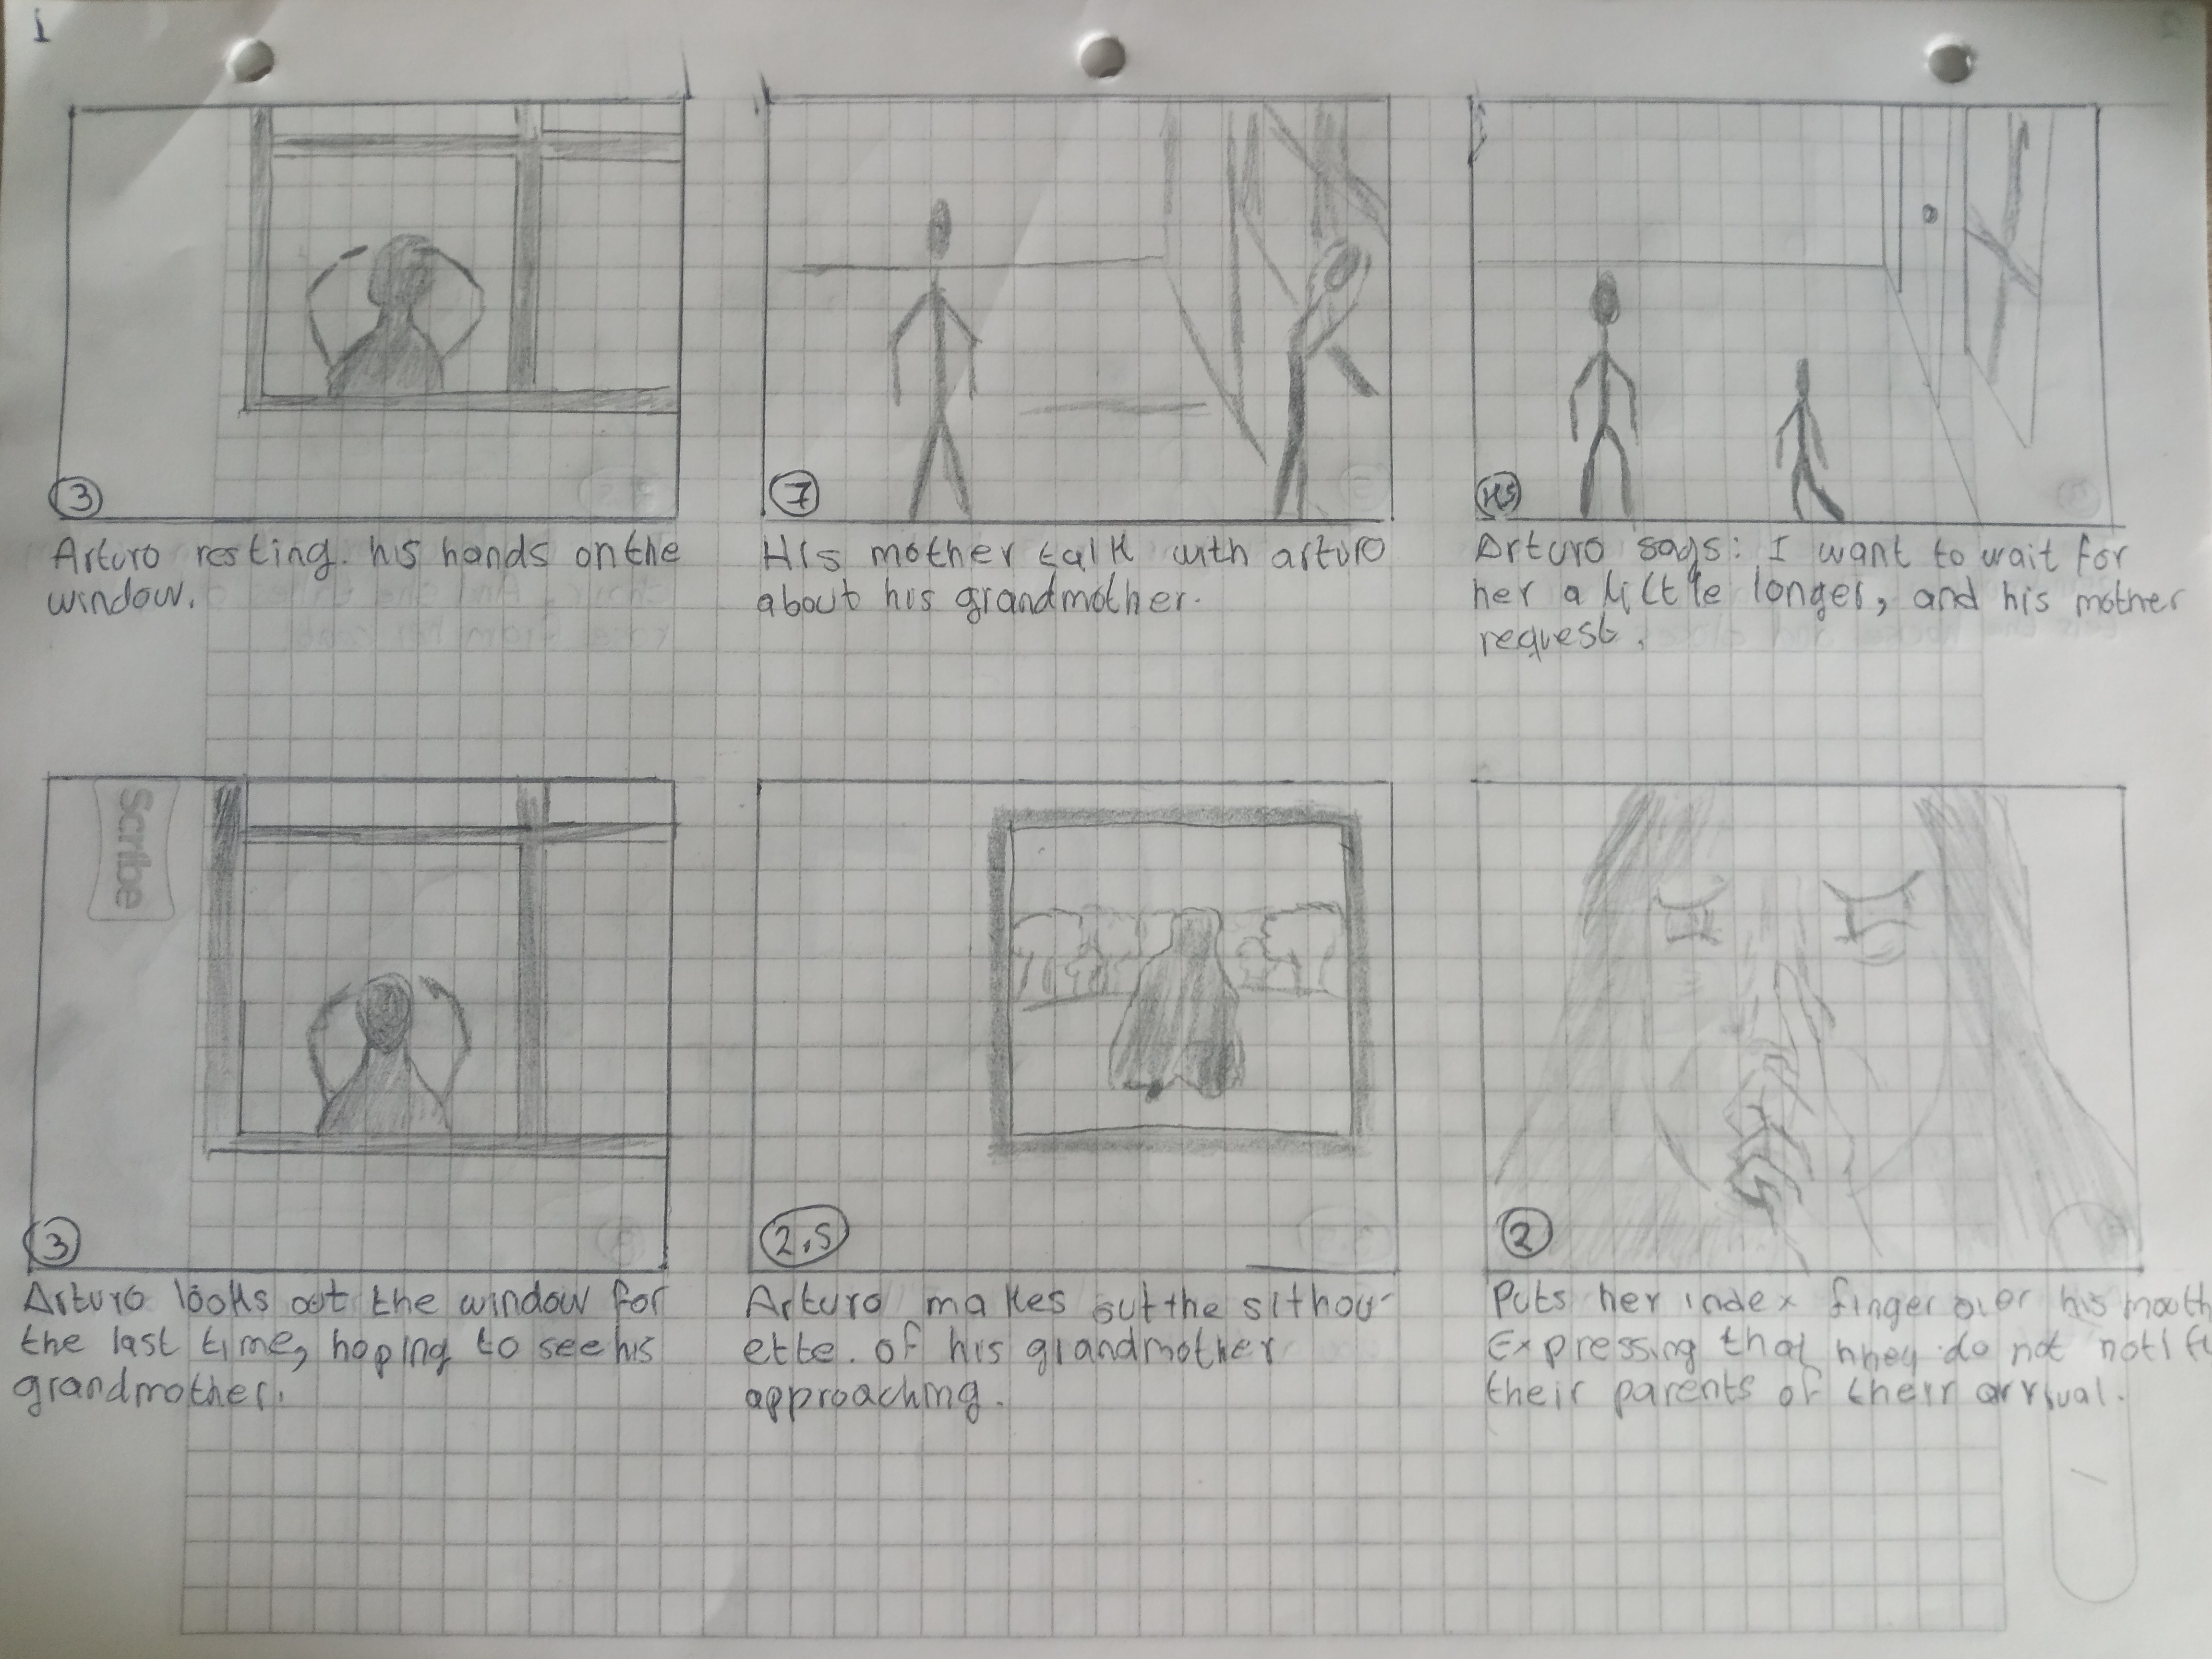 1
3
Arturo resting. his hands on the
window.
7
His mother talk with arturo
about his grandmother.
Arturo says: I want to wait for
her a little longer, and his mother
request.
Scribe
3
Arturo looks out the window for
the last time, hoping to see his
grandmother.
2,5
Arturo makes out the sithou-
ette. of his grandmother
approaching.
2
Puts her index finger over his mouth
Expressing that they do not notify
their parents of their arrival.